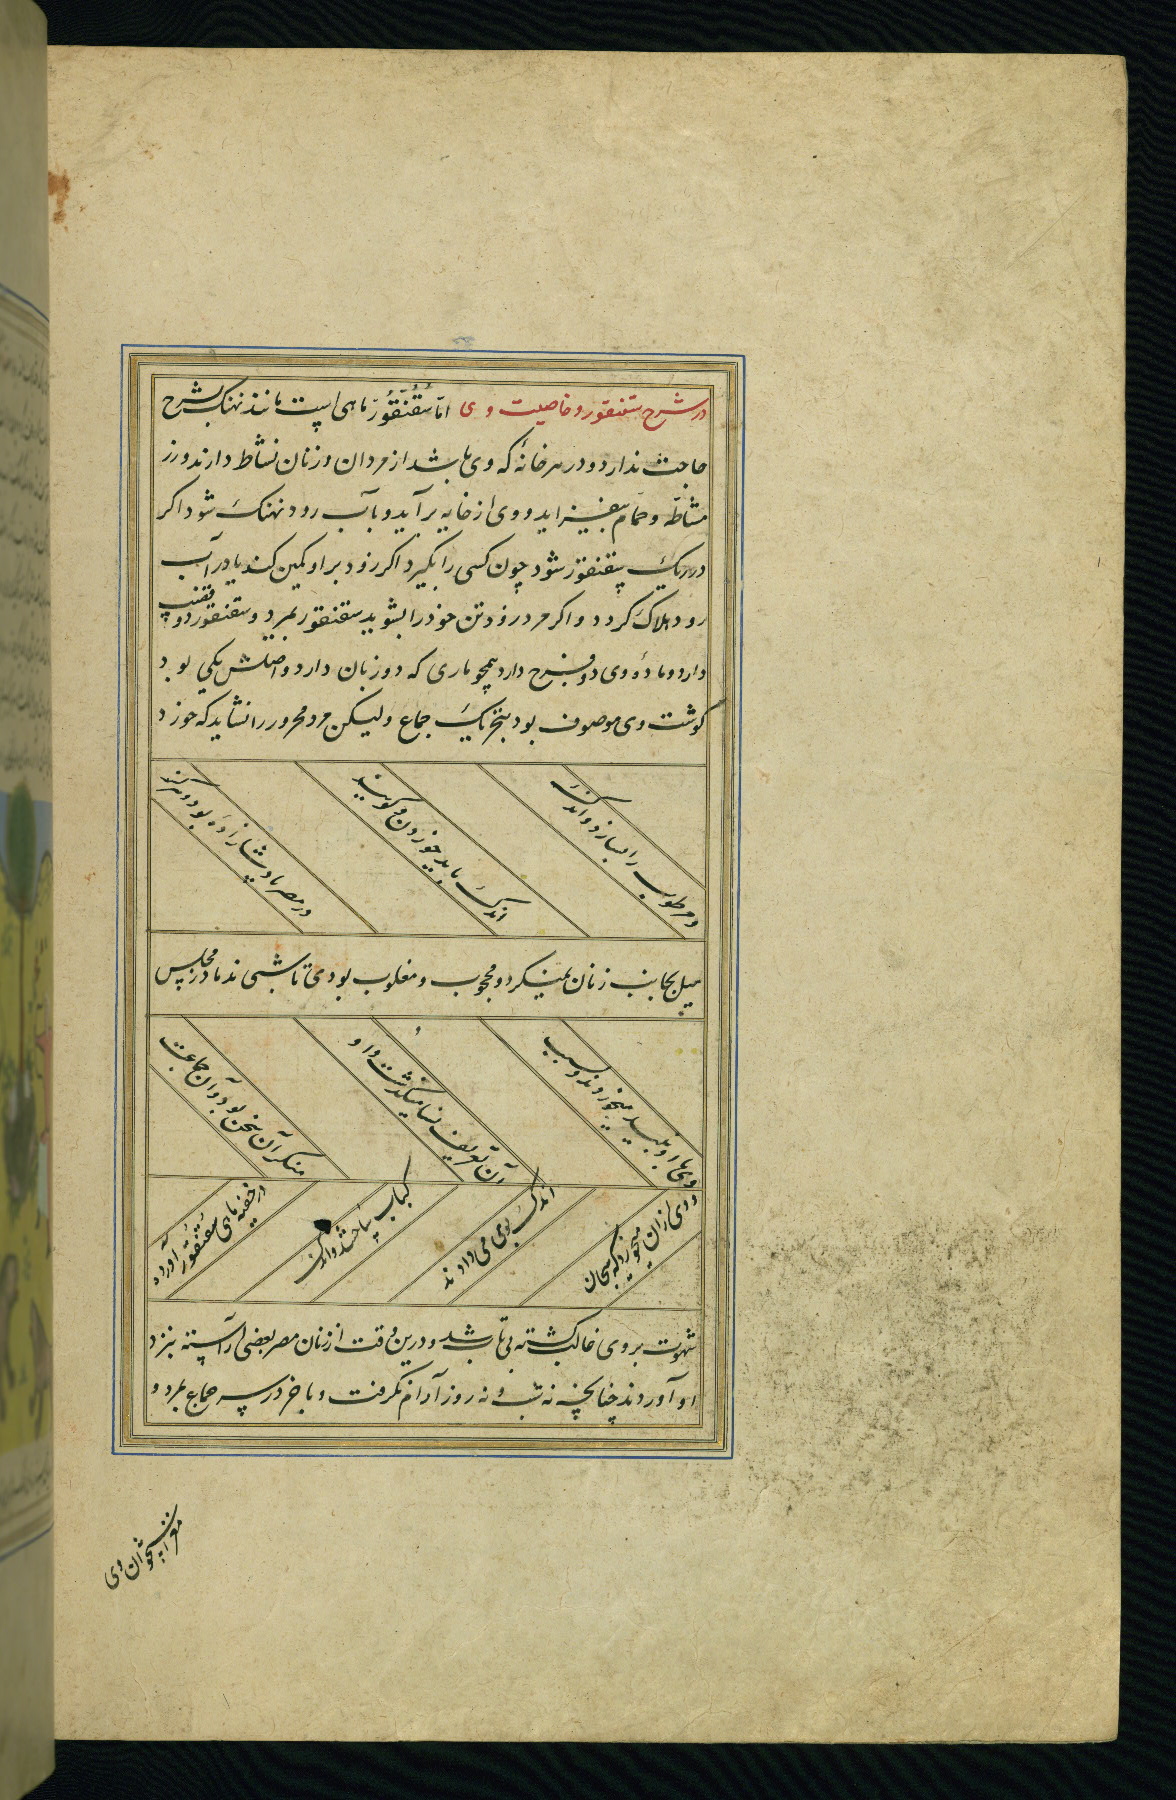 در شرح سقنقور و خاصیت وی اما سقنقور ماهی است مانند نهنک بشرح
حاجت ندارد و در هر خانهٔ که وی باشد از مردان و زنان نشاط دارند و رز
مشاطه و حمام بیفزاید و وی از خایه برآید و بآب رود نهنک شود اکر
در ریک سقنقور شود چون کسی را بگیرد اکر زود بر او کمین کند یا در آب
رود هلاک کردد و اکر مرد زود تن خود را بشوید سقنقور بمیرد و سقنقور دو قضیب
دارد و ماده وی دو فرج دارد همچو ماری که دو زبان دارد و اصلش یکی بود
کوشت وی موصوف بود بتحریک جماع ولیکن مرد محرور را نشاید که خورد
و مرطوب را بسازد و اندک
اندک باید خوردن و کویند
در مصر پادشازاده بود و هرکز
میل بجانب زنان نمیکرد و محجوب و مغلوب بودی تا شبی ندما در مجلس
وی با او نبید میخوردند و سبب
آن تعریف نسا میکذشت و او
منکر آن سخن بود و آن جماعت
در خفیه ماهی سقنقور آورده
کباب ساختند و اندک
اندک بوی می دادند
و وی از آن میخورد که سحان
شهوت بر وی غالب کشته بی تاب شد و درین وقت از زنان مصر بعضی آراسته بنزد
او آوردند چنانچه نه شب و نه روز آرام نکرفت و باخر در سر جماع بمرد و
مغز استخوان وی